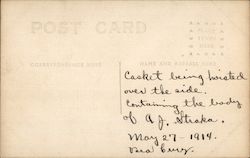 POST CARD
PLACE
STAMP
HERE
CORRESPONDENCE HERE
NAME AND ADDRESS HERE
Casket being hoisted
over the side.
Containing the body
of A J. Straka.
May 27 - 1914.